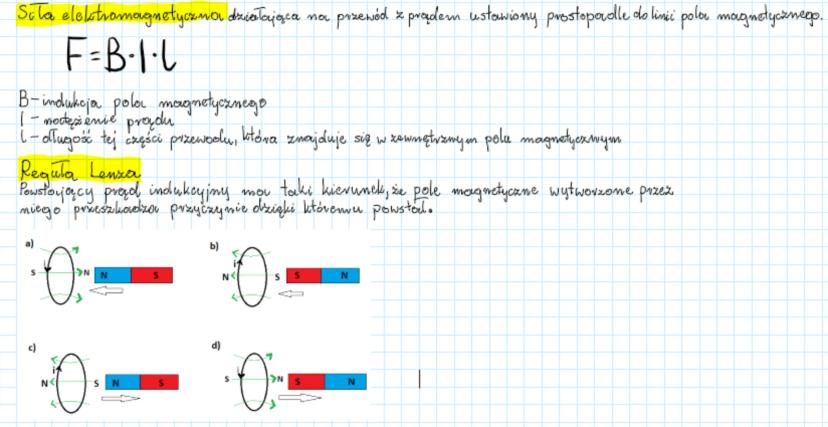 Siła elektromagnetyczna działająca na przewód z prądem ustawiony prostopadle do linii pola magnetycznego.
F=B·I·l
B-indukcja pola magnetycznego
I-natężenie prądu
l-długość tej części przewodu, która znajduje się w zewnętrznym polu magnetycznym
Reguła Lenza
Powstający prąd indukcyjny ma taki kierunek, że pole magnetyczne wytworzone przez
niego przeszkadza przyczynie dzięki któremu powstał.
a) b)
S i N N S N i S S N
c) d)
N i S N S S i N S N